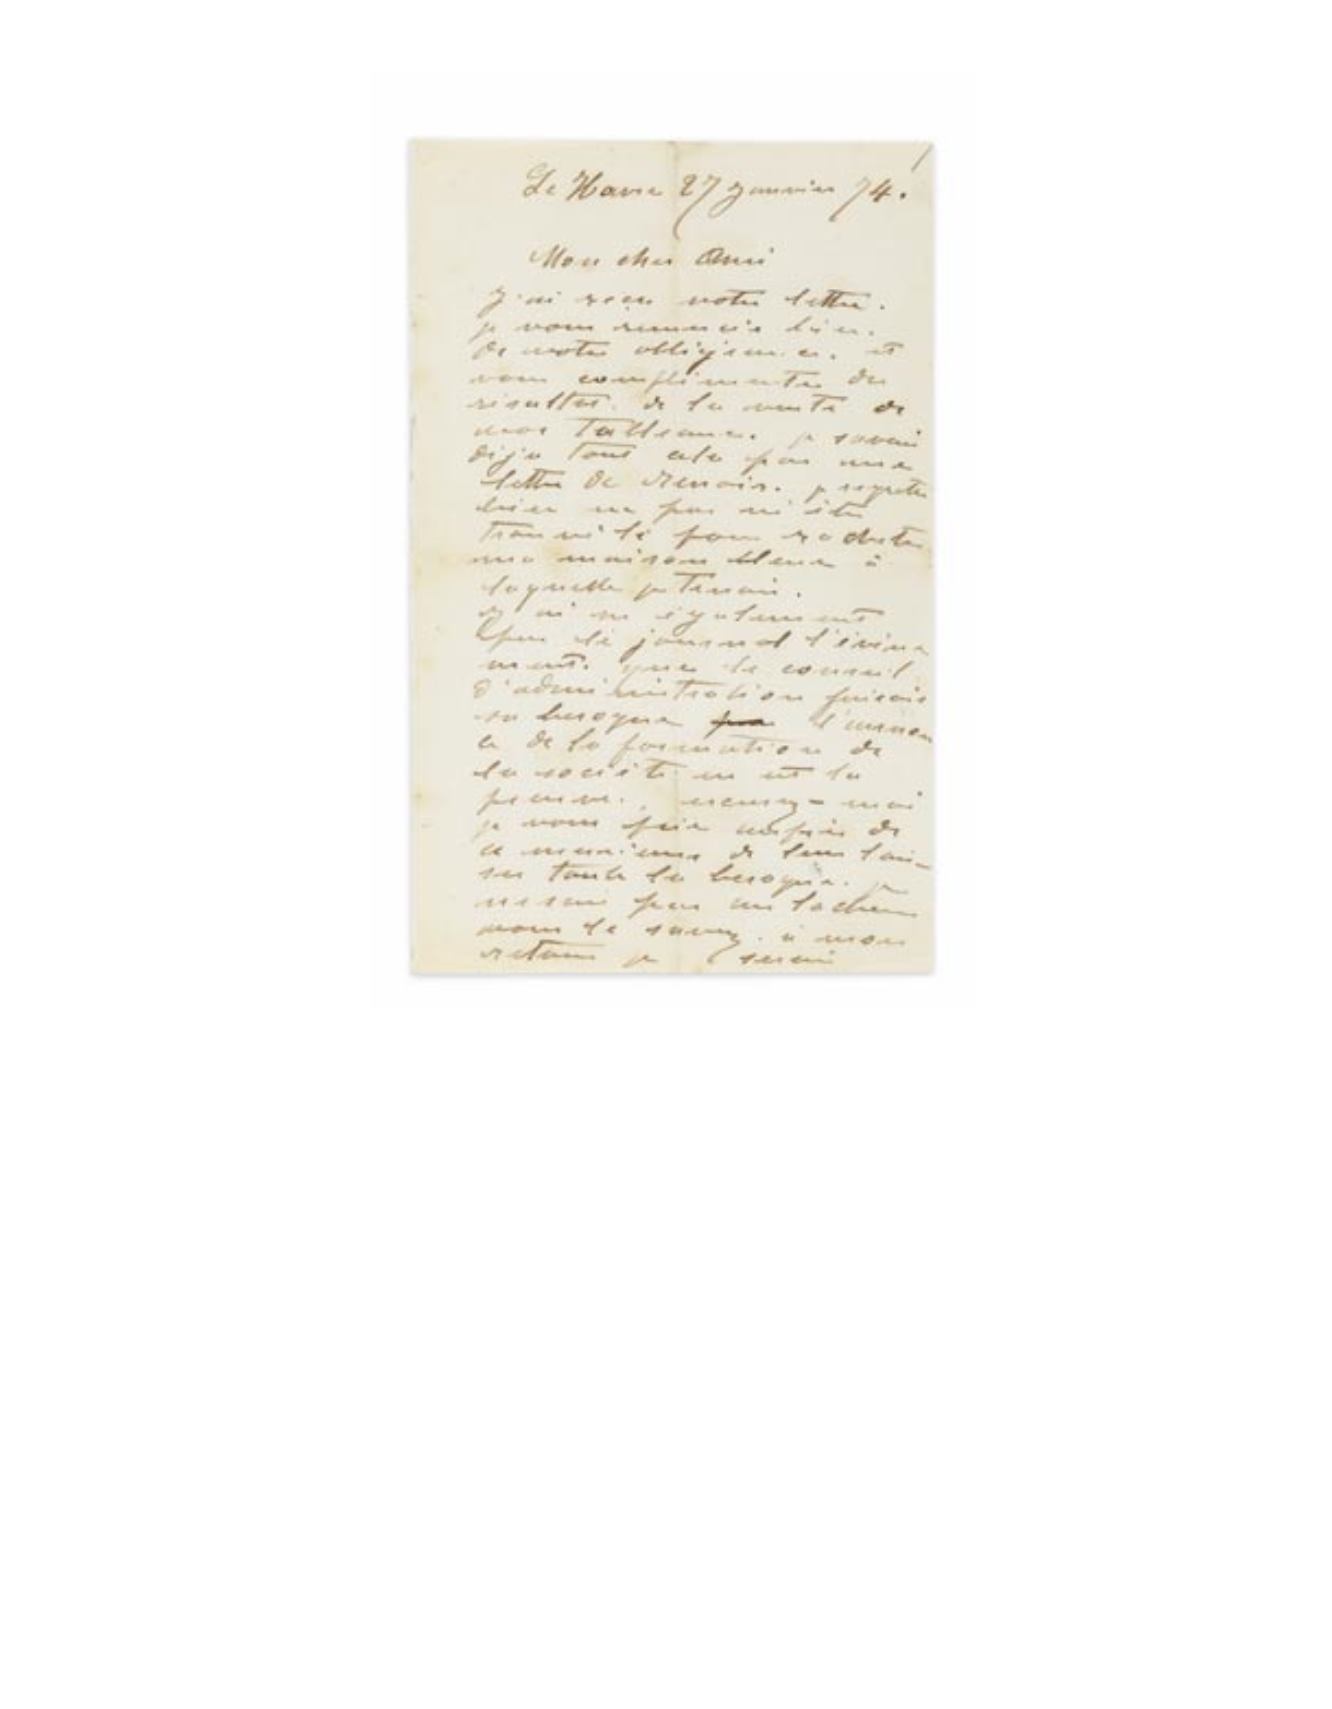 Le Havre 27 Janvier 74.
Mon cher Ami
J'ai recu votre lettre.
je vous remercie bien.
de votre obligeance. et
vous complimente du
résultat. de la vente de
mes Tableaux. je savais
déja tout cela par une
lettre de Renoir. je regrette
bien ne pas m'être
trouvé là pour racheter
ma maison bleue à
laquelle je tenais.
J'ai vu également
par le journal l'événe
ment. que le conseil
d'administration faisait
sa besogne l'annon
ce de la formation de
la société en est la
preuve. excusez-moi
je vous prie auprès de
ce messieurs de leur lais-
ser toute la besogne. je
ne suis pas un lacheur
vous le savez. à mon
retour je serai